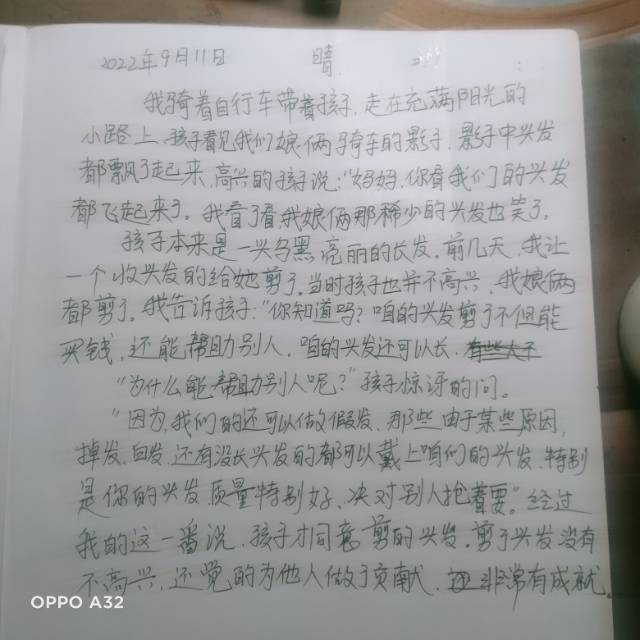 2022年9月11日 晴
我骑着自行车带着孩子，走在充满阳光的
小路上，孩子看见我们娘俩骑车的影子，影子中头发
都飘了起来，高兴的孩子说："妈妈，你看我们的头发
都飞起来了。我看了看我娘俩那稀少的头发也笑了。
孩子本来是一头乌黑亮丽的长发，前几天，我让
一个收头发的给她剪了，当时孩子也并不高兴，我娘俩
都剪了，我告诉孩子："你知道吗？咱的头发剪了不但能
买钱，还能帮助别人，咱的头发还可以长，
"为什么能帮助别人呢？"孩子惊讶的问。
"因为，我们的还可以做假发，那些由于某些原因，
掉发、白发、还有没长头发的都可以戴上咱们的头发，特别
是你的头发质量特别好、决对别人抢着要。"经过
我的这一番说，孩子才同意剪的头发，剪了头发没有
不高兴，还觉的为他人做了贡献，非常有成就。
OPPO A32